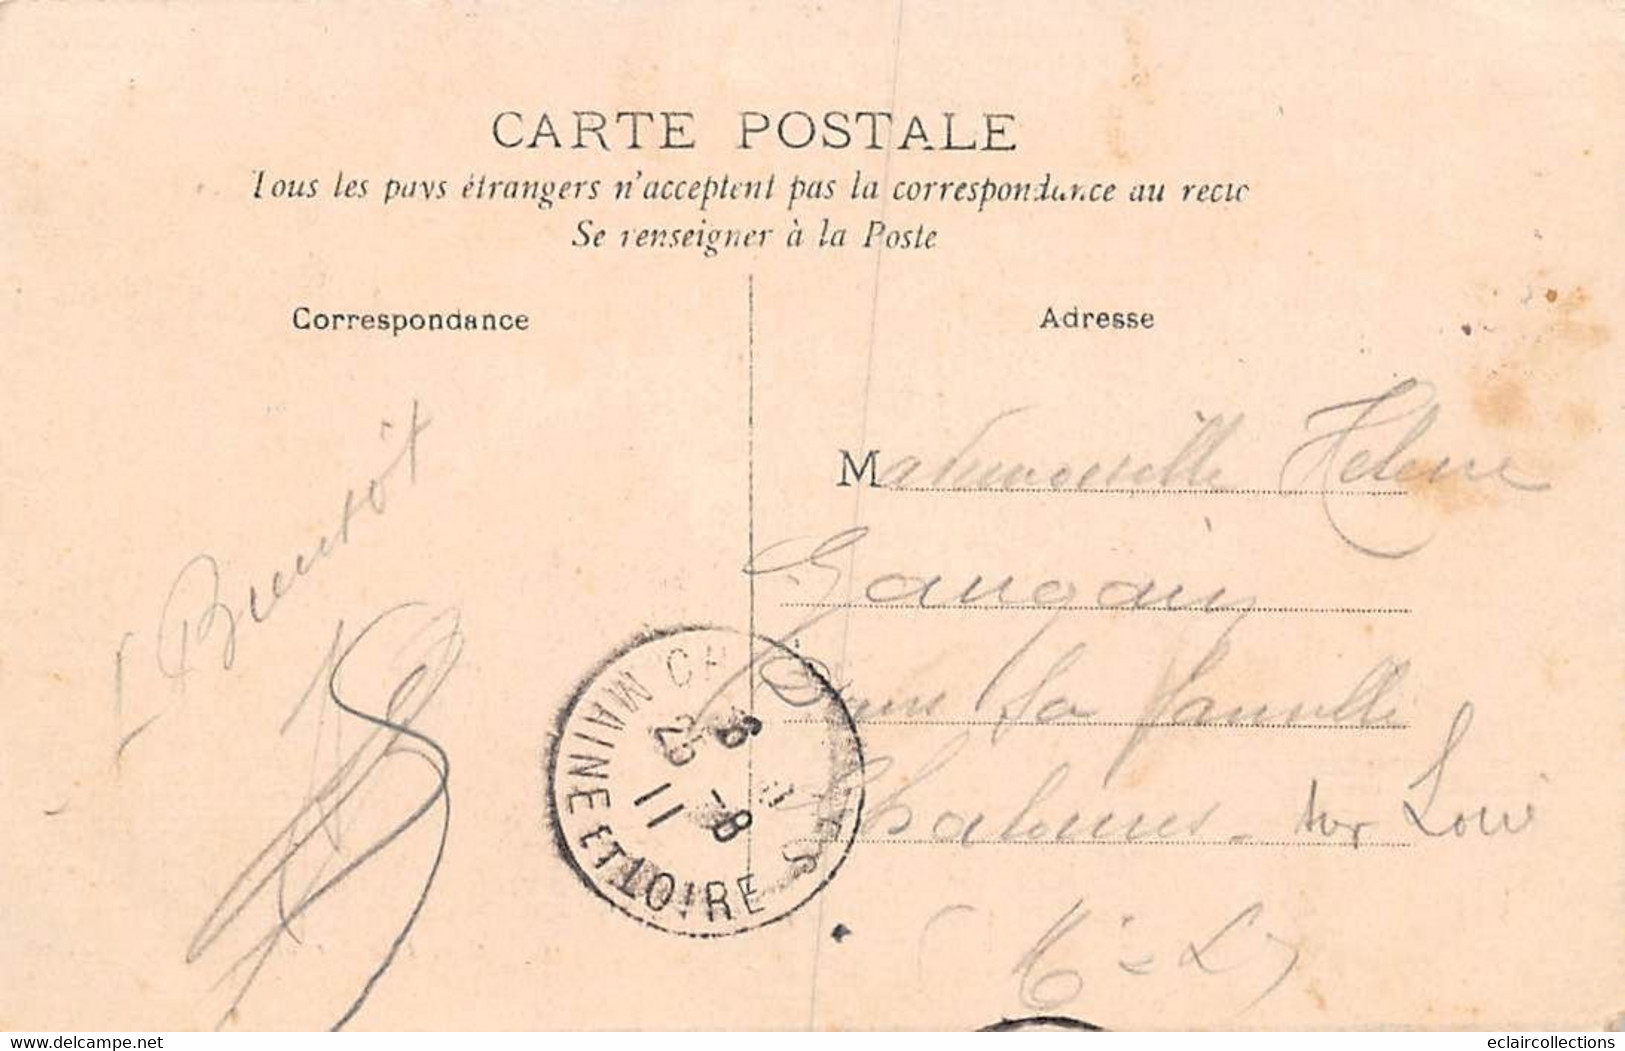 CARTE POSTALE
Tous les pays étrangers n'acceptent pas la correspondance au recto
Se renseigner à la Poste
Correspondance
Adresse
à Bientôt
Mademoiselle Hélène
Gaugain
Dans sa famille
Chalonnes - sur Loire
(M & L)
MAINE ET LOIRE
25 - 8
11
www.delcampe.net
eclaircollections